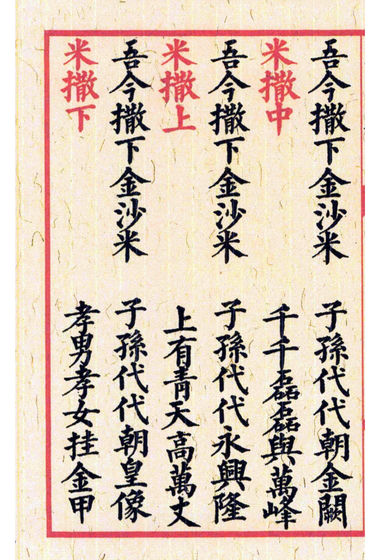 吾今撒下金沙米 子孫代代朝金闕
米撒中 千千磊磊與萬峰
吾今撒下金沙米 子孫代代永興隆
米撒上 上有青天高萬丈
吾今撒下金沙米 子孫代代朝皇像
米撒下 孝男孝女挂金甲